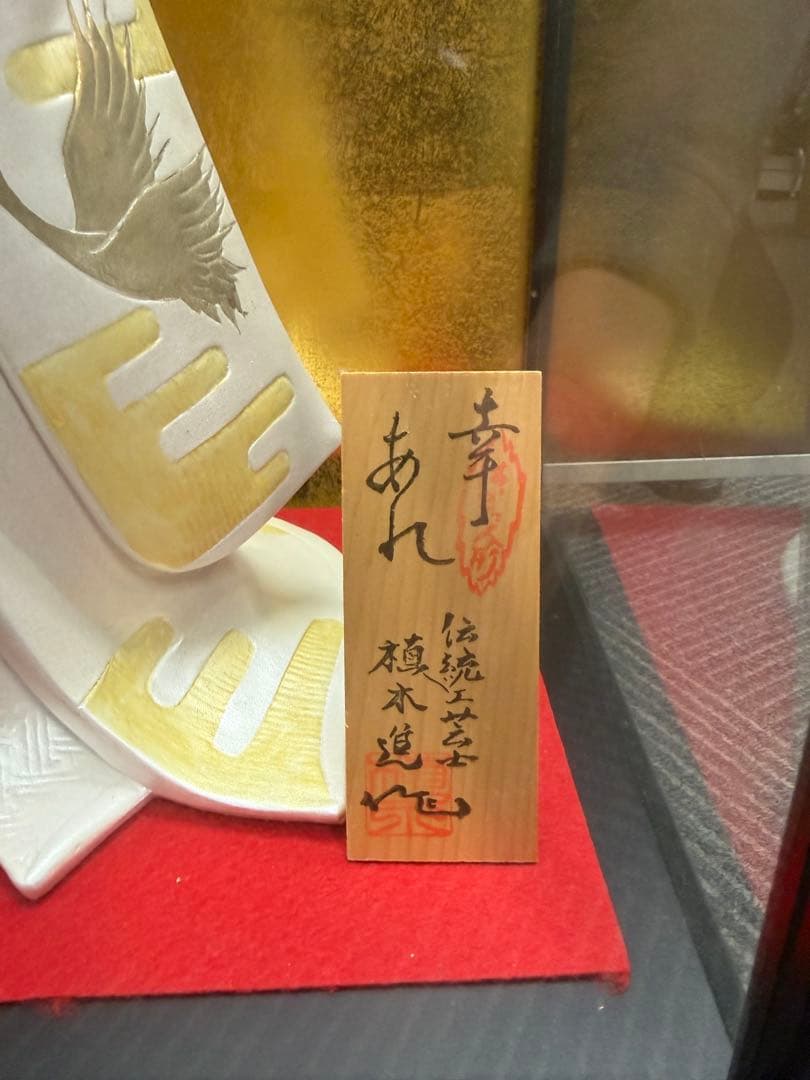 幸
あれ
伝統工芸士
植木進
作